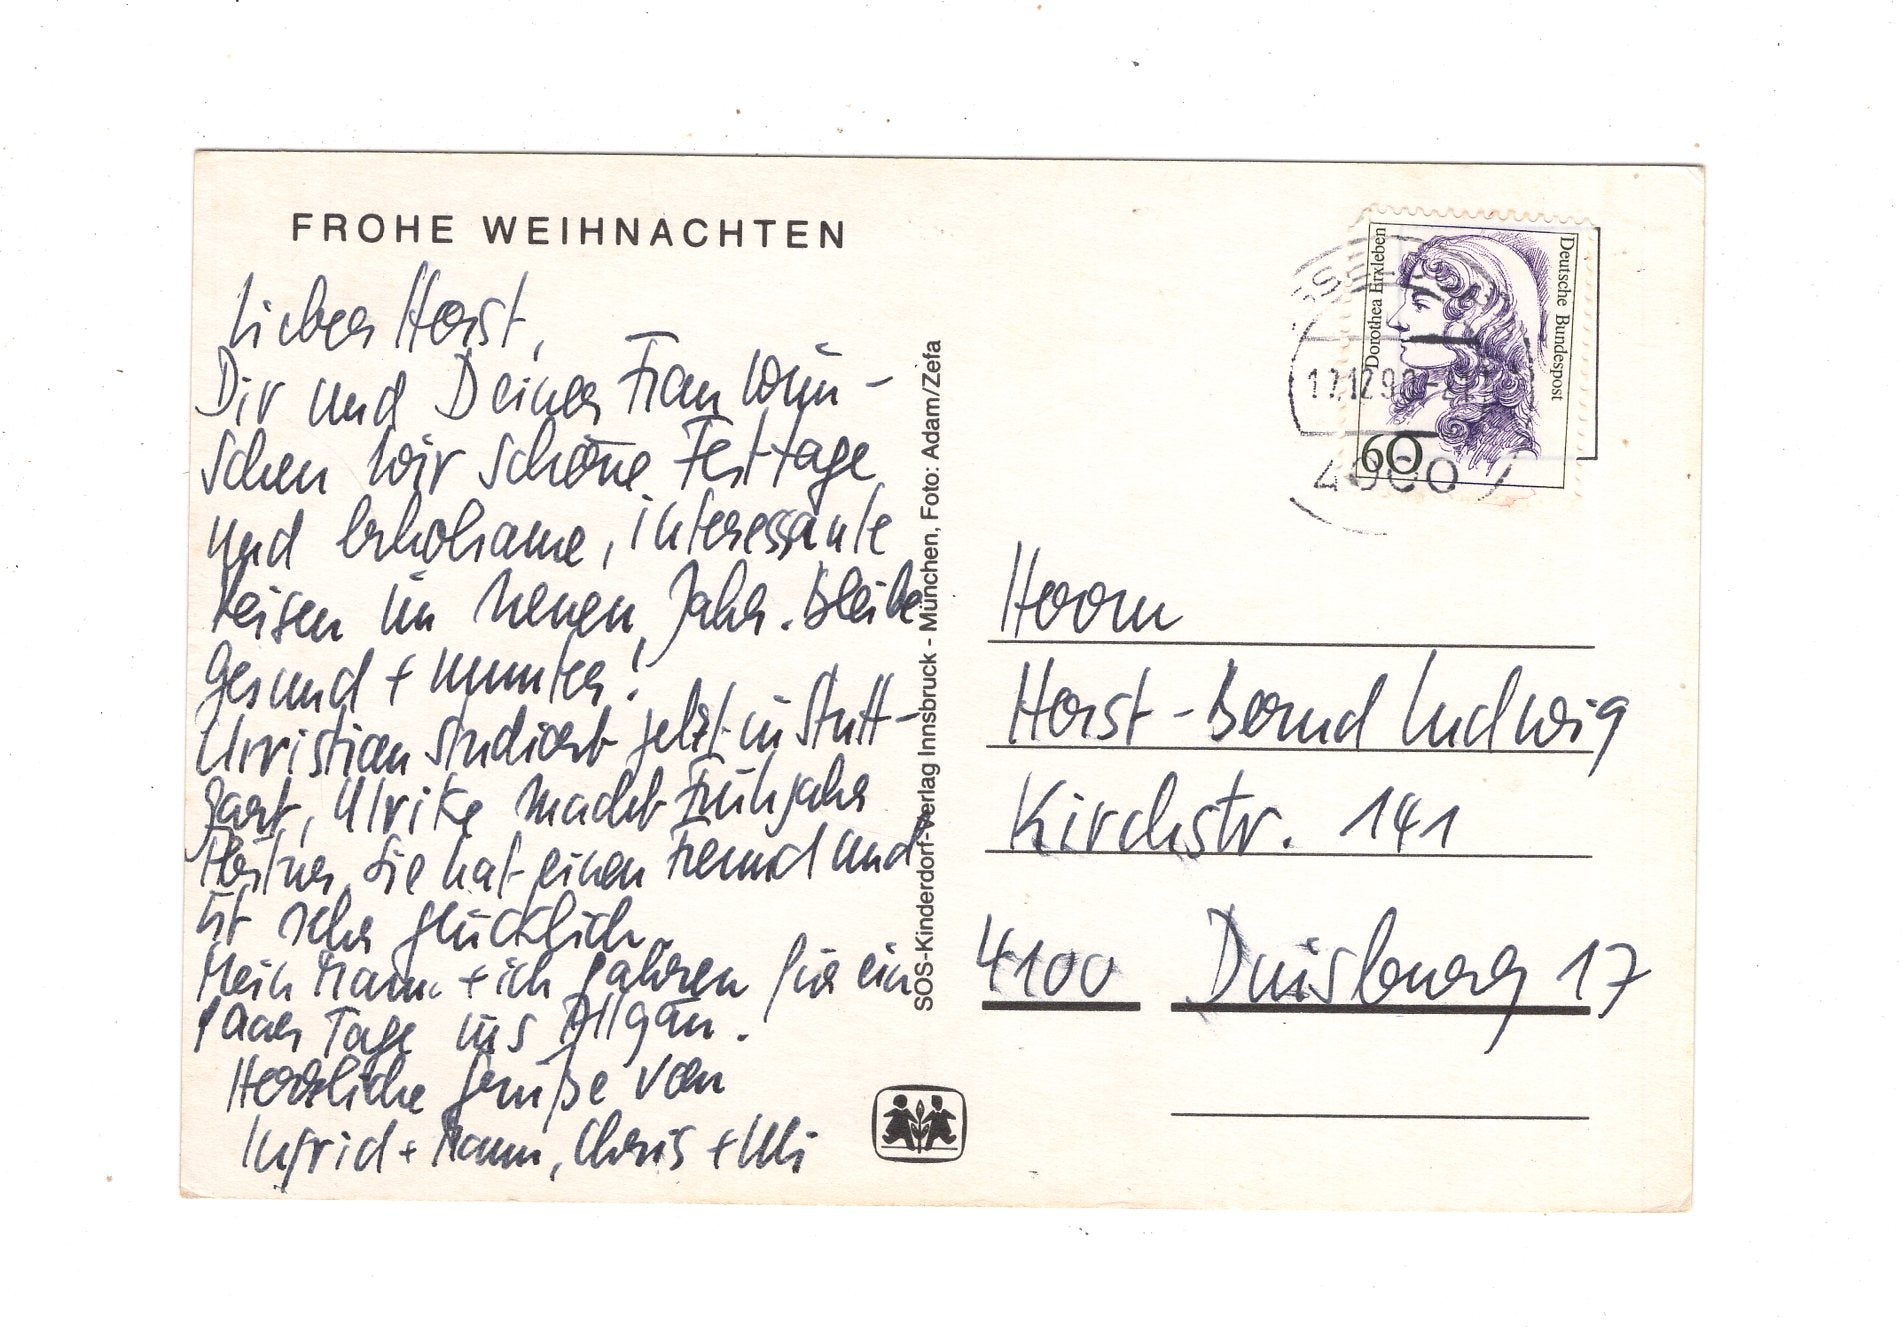 FROHE WEIHNACHTEN
Lieber Horst,
Dir und Deiner Frau wün-
schen wir schöne Festtage
und erholsame, interessante
Reisen im neuen Jahr. Bleibe
gesund + munter!
Christian studiert jetzt in Stutt-
gart, Ulrike macht Frühjahr
Sie hat einen Freund und
ist sehr glücklich.
Mein Mann + ich fahren für ein
paar Tage ins Allgäu.
Herzliche Grüße von
Ingrid + Mann, Chris + Ulli
SOS-Kinderdorf-Verlag Innsbruck - München, Foto: Adam/Zefa
Deutsche Bundespost
Dorothea Erxleben
60
17.12.90
4000
Herrn
Horst-Bernd Ludwig
Kirchstr. 141
4100 Duisburg 17